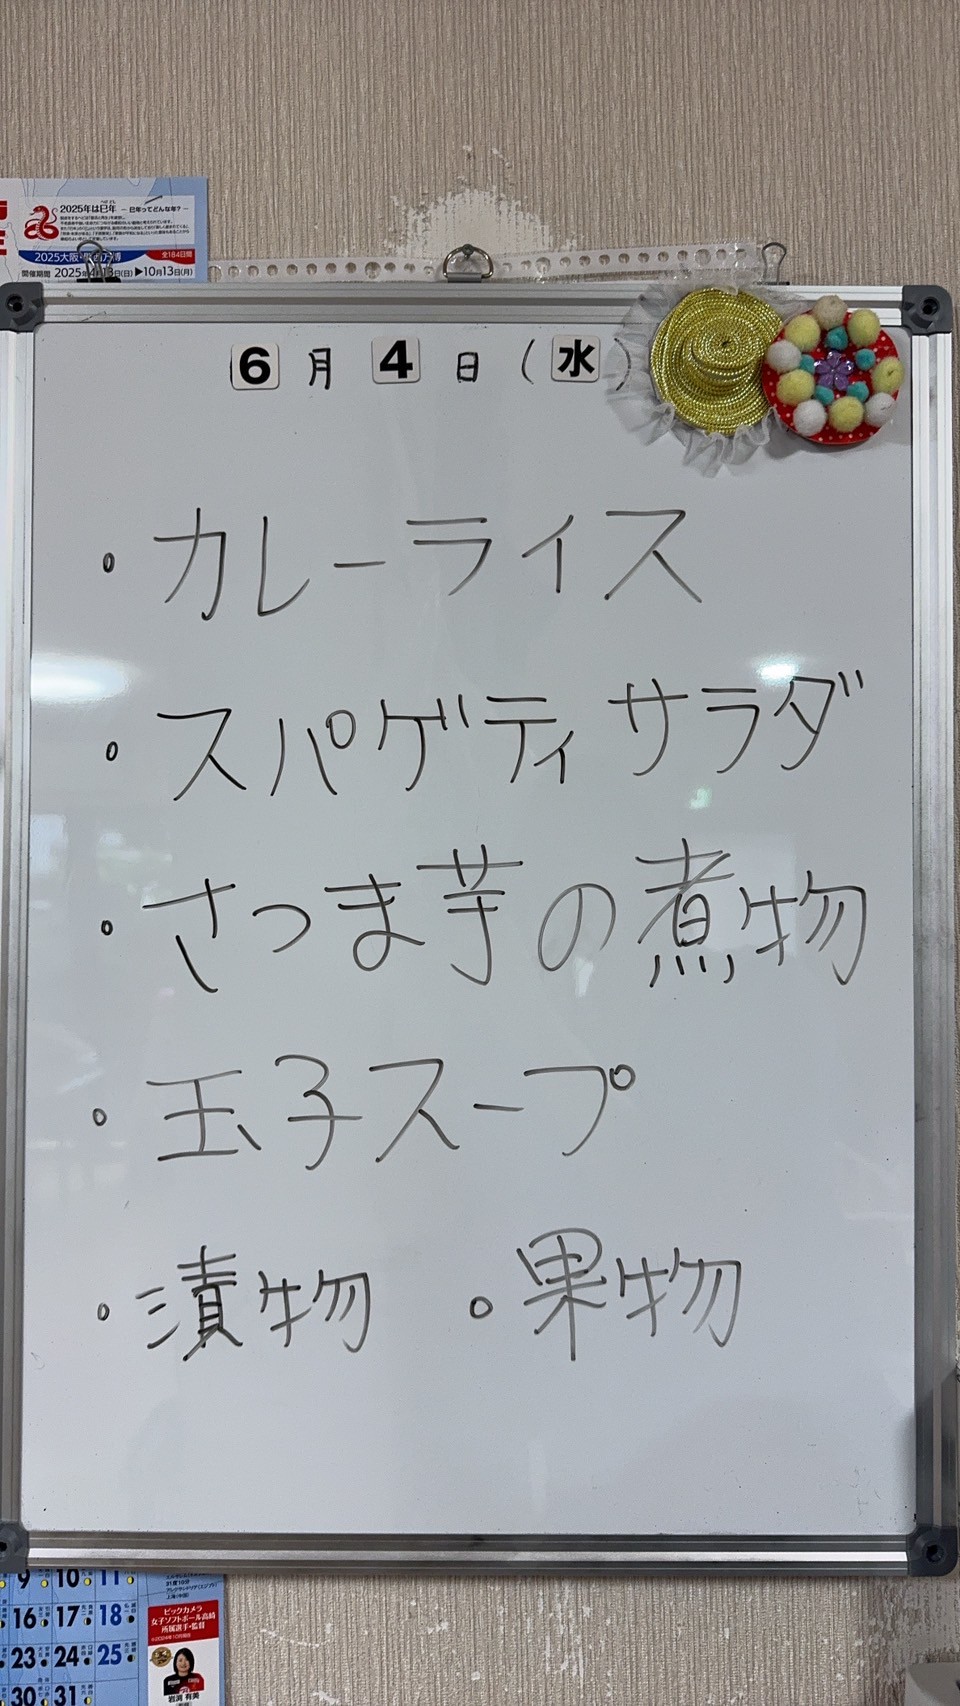 2025年は巳年 －巳年ってどんな年？－
2025大阪・
全184日間
開催期間 2025年4月13日(日)▶10月13日(月)
6月4日(水)
・カレーライス
・スパゲティサラダ
・さつま芋の煮物
・玉子スープ
・漬物 ・果物
9 10 11
16 17 18
23 24 25
30 31
ビックカメラ
女子ソフトボール高崎
所属選手・監督
岩渕 有美